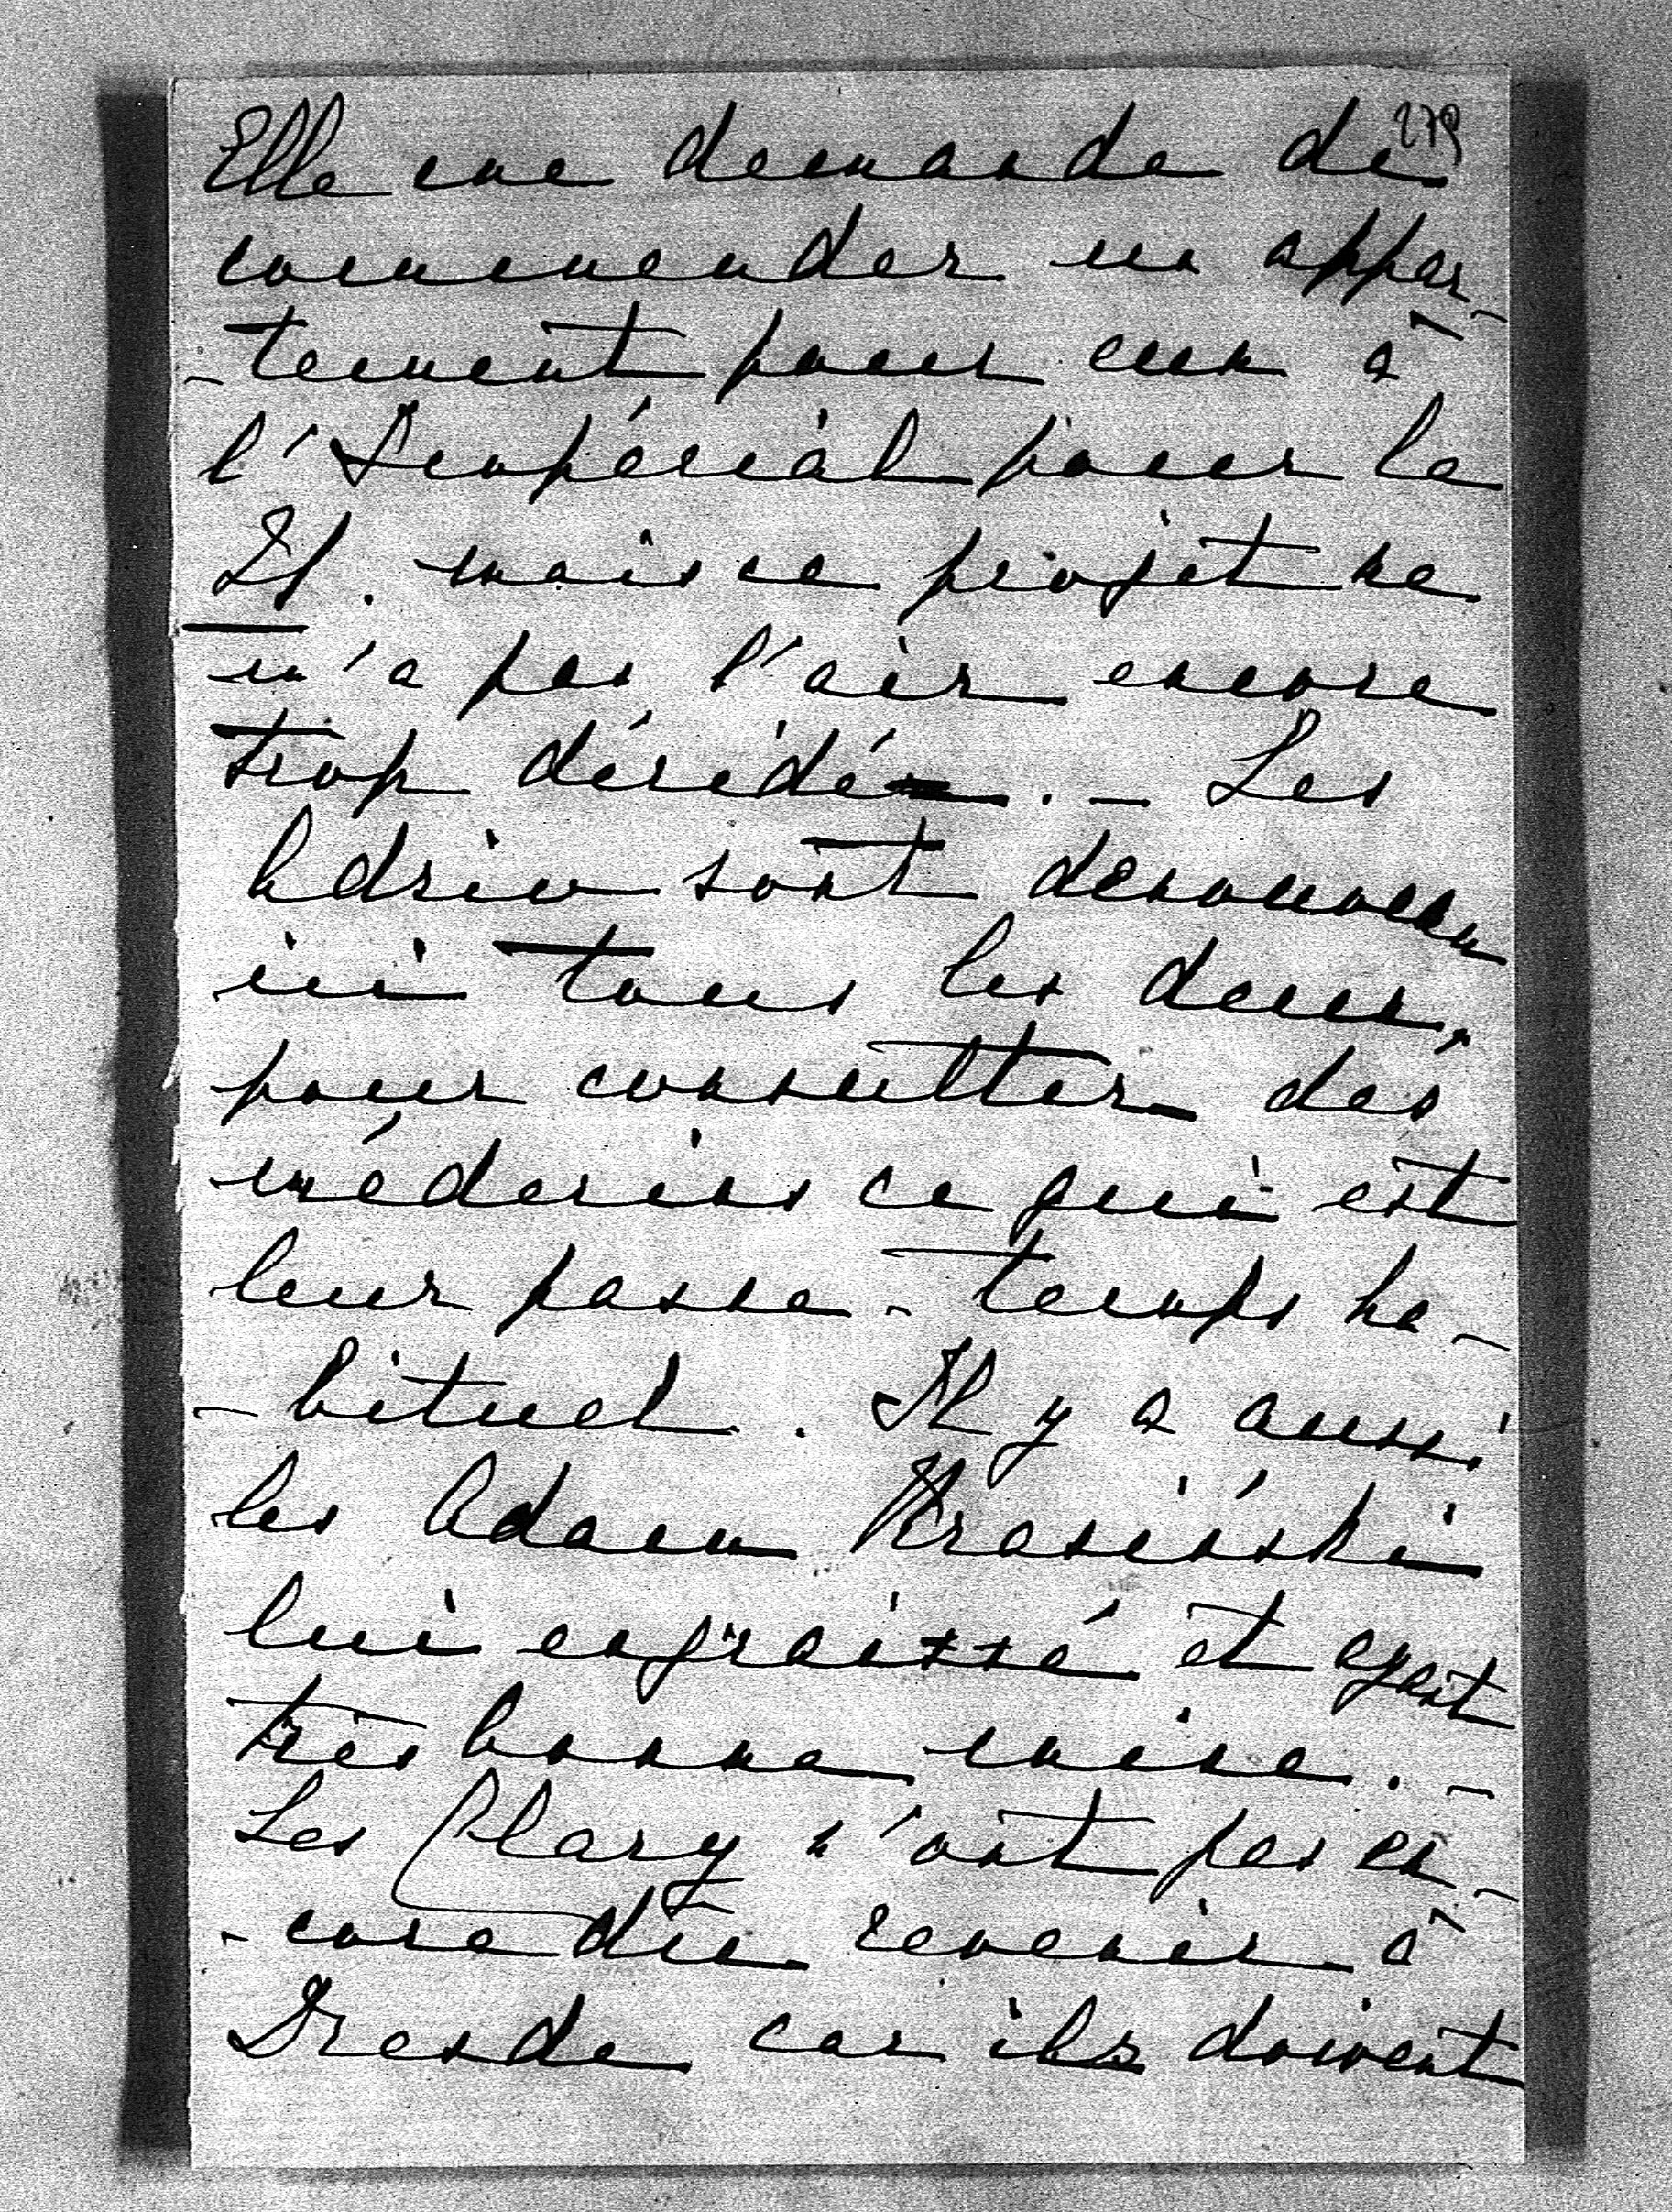 279
Elle me demande de
commender un appar-
-tement pour eux à
l'Impérial pour le
21. mais ce projet ne
m'a pas l'air encore
trop décidé. - Les
Adrien sont denouveau
ici tous les deux,
pour consulter des
médecins ce qui est
leur passe-temps ha-
-bituel. Il y a aussi
les Adam Krasiński
lui engraissé et ayant
très bonne mine. -
Les Clary n'ont pas en-
-core dû revenir à
Dresde car ils doivent